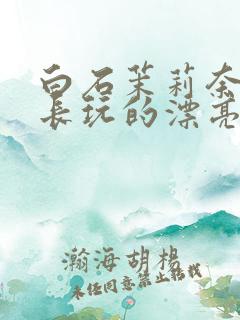 白石茉莉奈
长玩的漂亮
瀚海胡杨
未经同意禁止转载